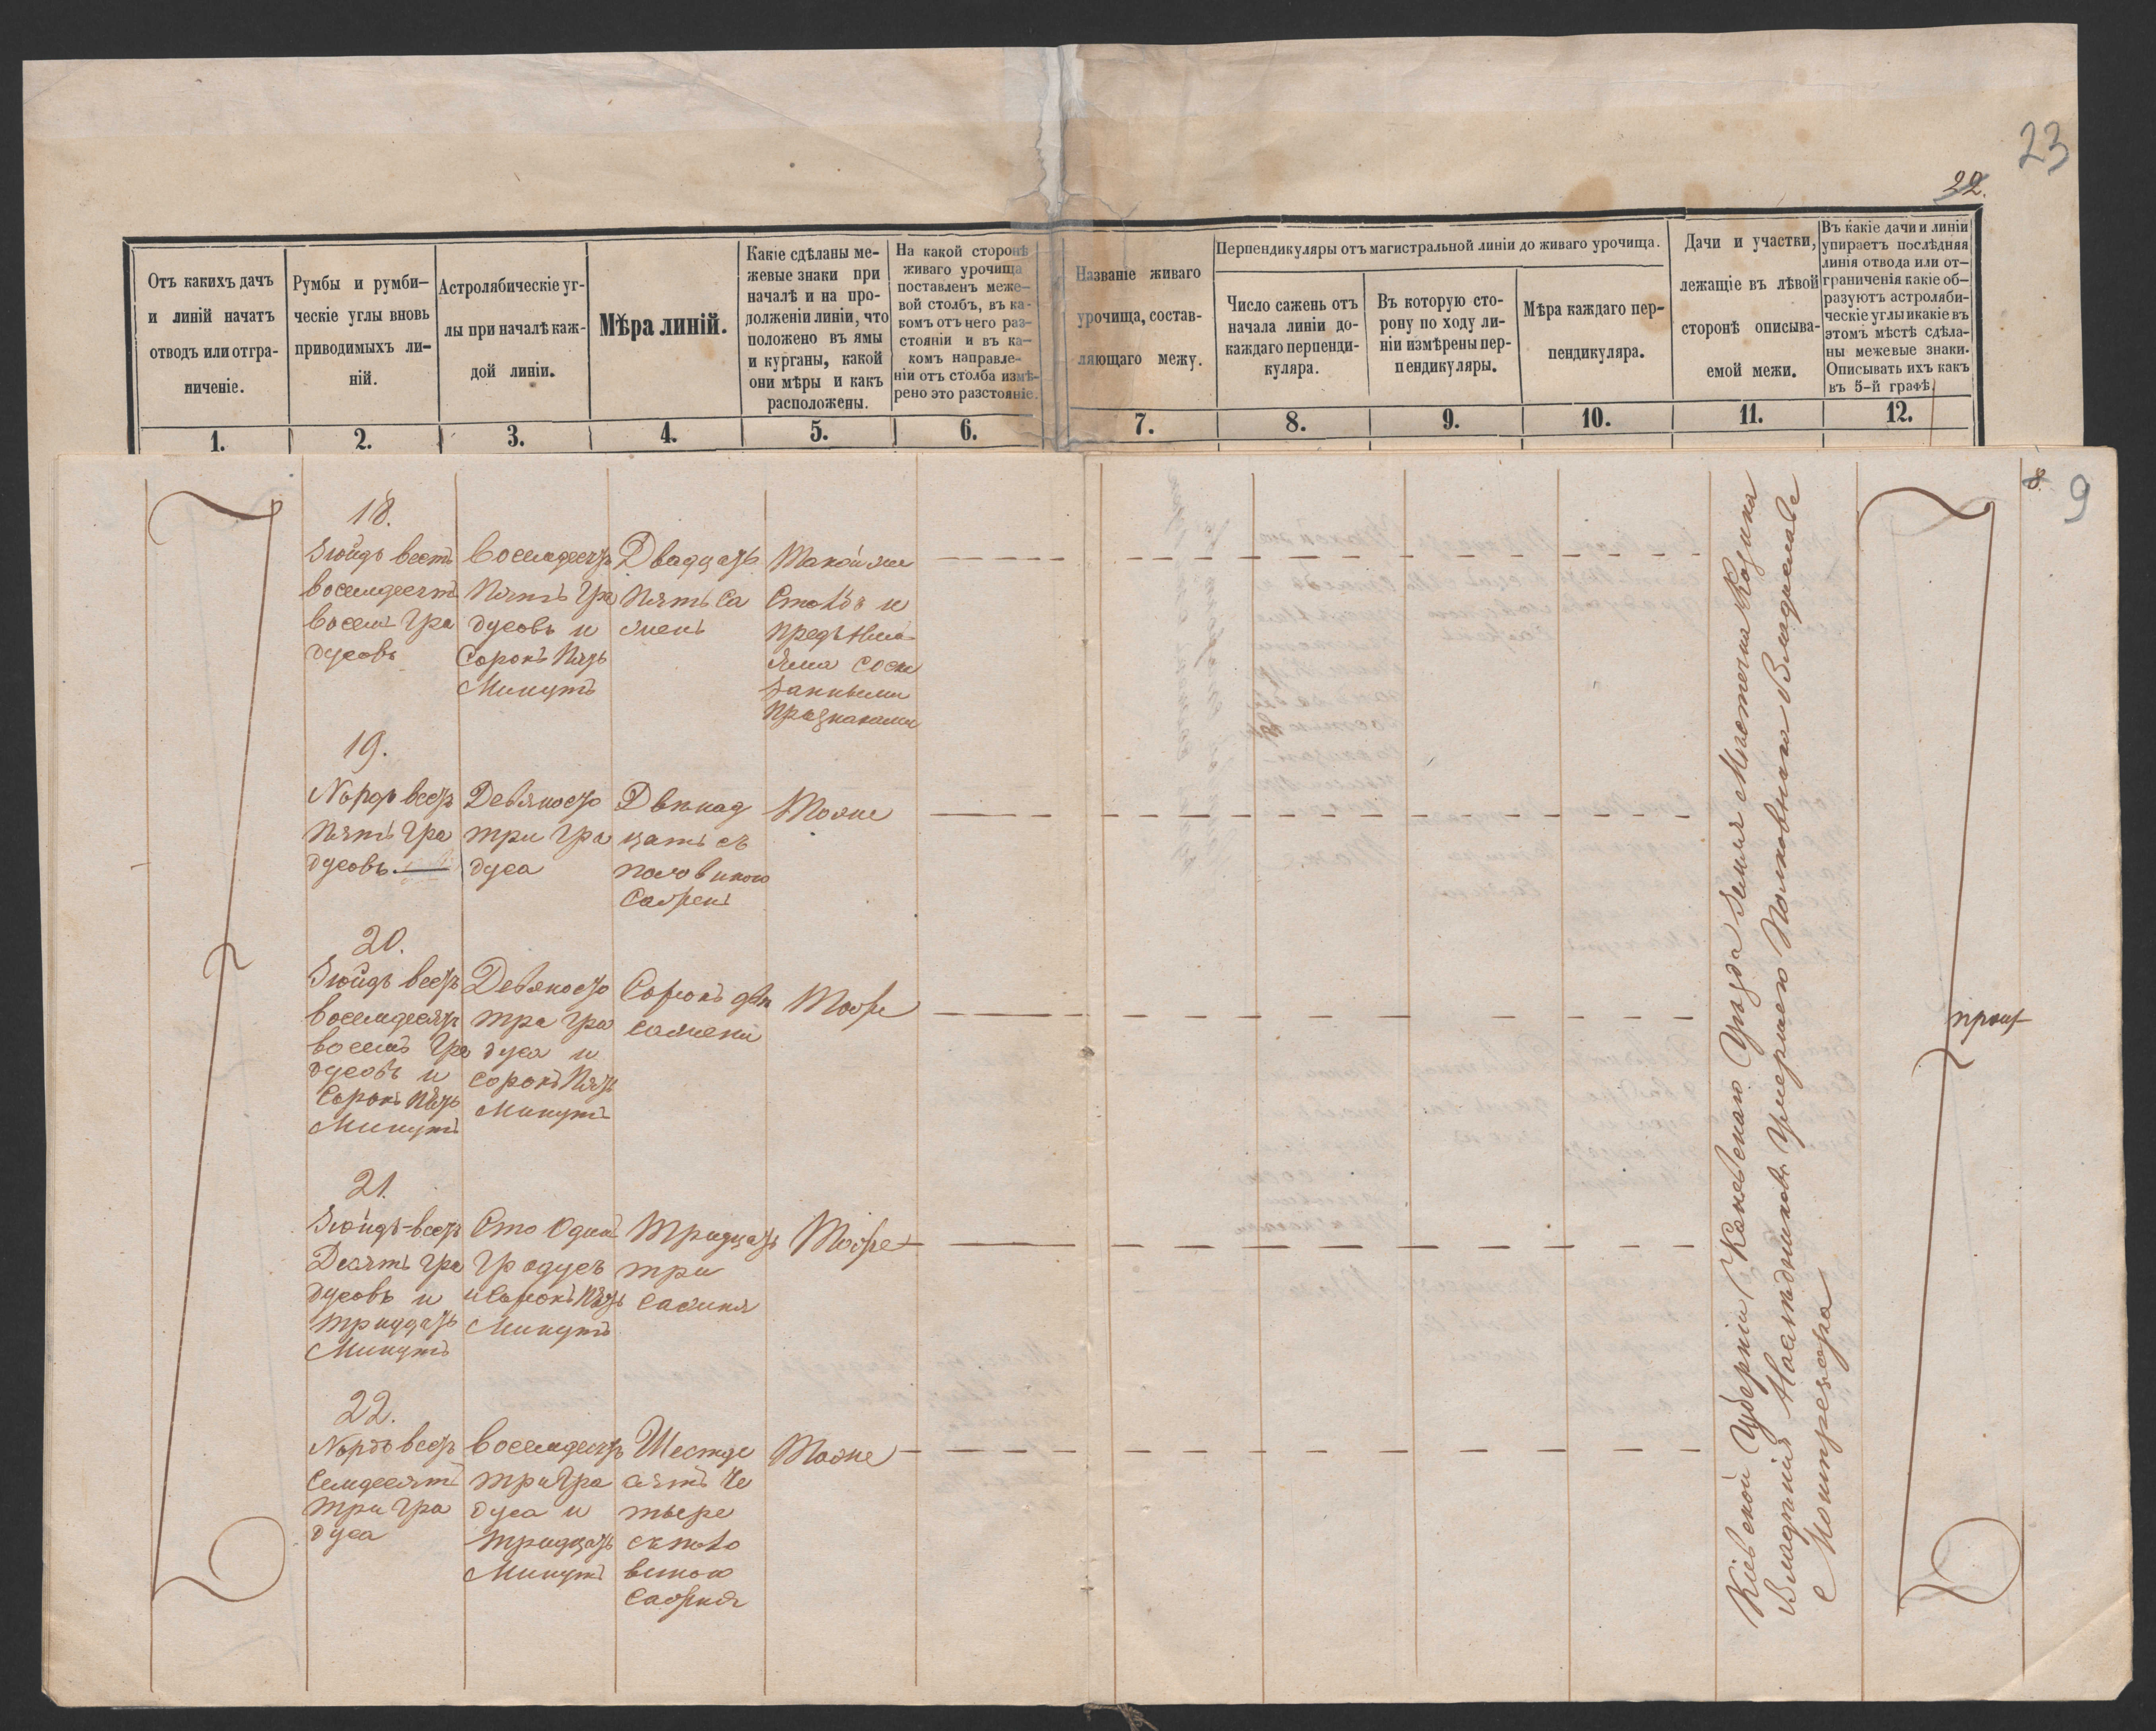 23
22.
Отъ какихъ дачъ
и линій начатъ
отводъ или отгра-
ниченіе.
Румбы и румби-
ческіе углы вновь
приводимыхъ ли-
ній.
Астролябическіе уг-
лы при началѣ каж-
дой линіи.
Мѣра линій.
Какіе сдѣланы ме-
жевые знаки при
началѣ и на про-
долженіи линіи, что
положено въ ямы
и курганы, какой
они мѣры и какъ
расположены.
На какой сторонѣ
живаго урочища
поставленъ меже-
вой столбъ, въ ка-
комъ отъ него раз-
стояніи и въ ка-
комъ направле-
ніи отъ столба измѣ-
рено это разстояніе.
Названіе живаго
урочища, состав-
ляющаго межу.
Перпендикуляры отъ магистральной линіи до живаго урочища.
Число сажень отъ
начала линіи до-
каждаго перпенди-
куляра.
Въ которую сто-
рону по ходу ли-
ніи измѣрены пер-
пендикуляры.
Мѣра каждаго пер-
пендикуляра.
Дачи и участки,
лежащіе въ лѣвой
сторонѣ описыва-
емой межи.
Въ какіе дачи и линіи
упираетъ послѣдняя
линія отвода или от-
граниченія какіе об-
разуютъ астроляби-
ческіе углы и какіе въ
этомъ мѣстѣ сдѣла-
ны межевые знаки.
Описывать ихъ какъ
въ 5-й графѣ.
1. 2. 3. 4. 5. 6. 7. 8. 9. 10. 11. 12.
8.
9
18.
Зюйдъ вестъ
восемдесятъ
восемь Гра
дусовъ
Восемдесятъ
Пять Гра
дусовъ и
Сорокъ Пять
Минутъ
Двадцать
Пять Са
жень
Такой же
Столбъ и
предъ Ним
Яма со ска
занными
Признаками
19.
Nордъ вестъ
Пять Гра
дусовъ.
Девяносто
три Гра
дуса
Двѣнад
цать съ
половиною
Сажень
Тоже
20.
Зюйдъ вестъ
Восемдесятъ
восемь Гра
дусовъ и
Сорокъ Пять
Минутъ
Девяносто
три Гра
дуса и
сорокъ Пять
Минутъ
Сорокъ двѣ
сажени
Тоже
21.
Зюйдъ-вестъ
Десять Гра
дусовъ и
тридцать
Минутъ
Сто Одинъ
Градусъ
и Сорокъ Пять
Минутъ
Тридцать
три
Сажня
Тоже
22.
Nордъ вестъ
Семдесятъ
три Гра
дуса
Восемдесятъ
три Гра
дуса и
тридцать
Минутъ
Шестде
сятъ Че
тыре
съ поло
виною
Сажня
Тоже
Кіевской Губерніи Каневскаго Уѣзда земля Мѣстечка Кодинка
Владѣнія Наслѣдниковъ Умершаго Полковника Владислава